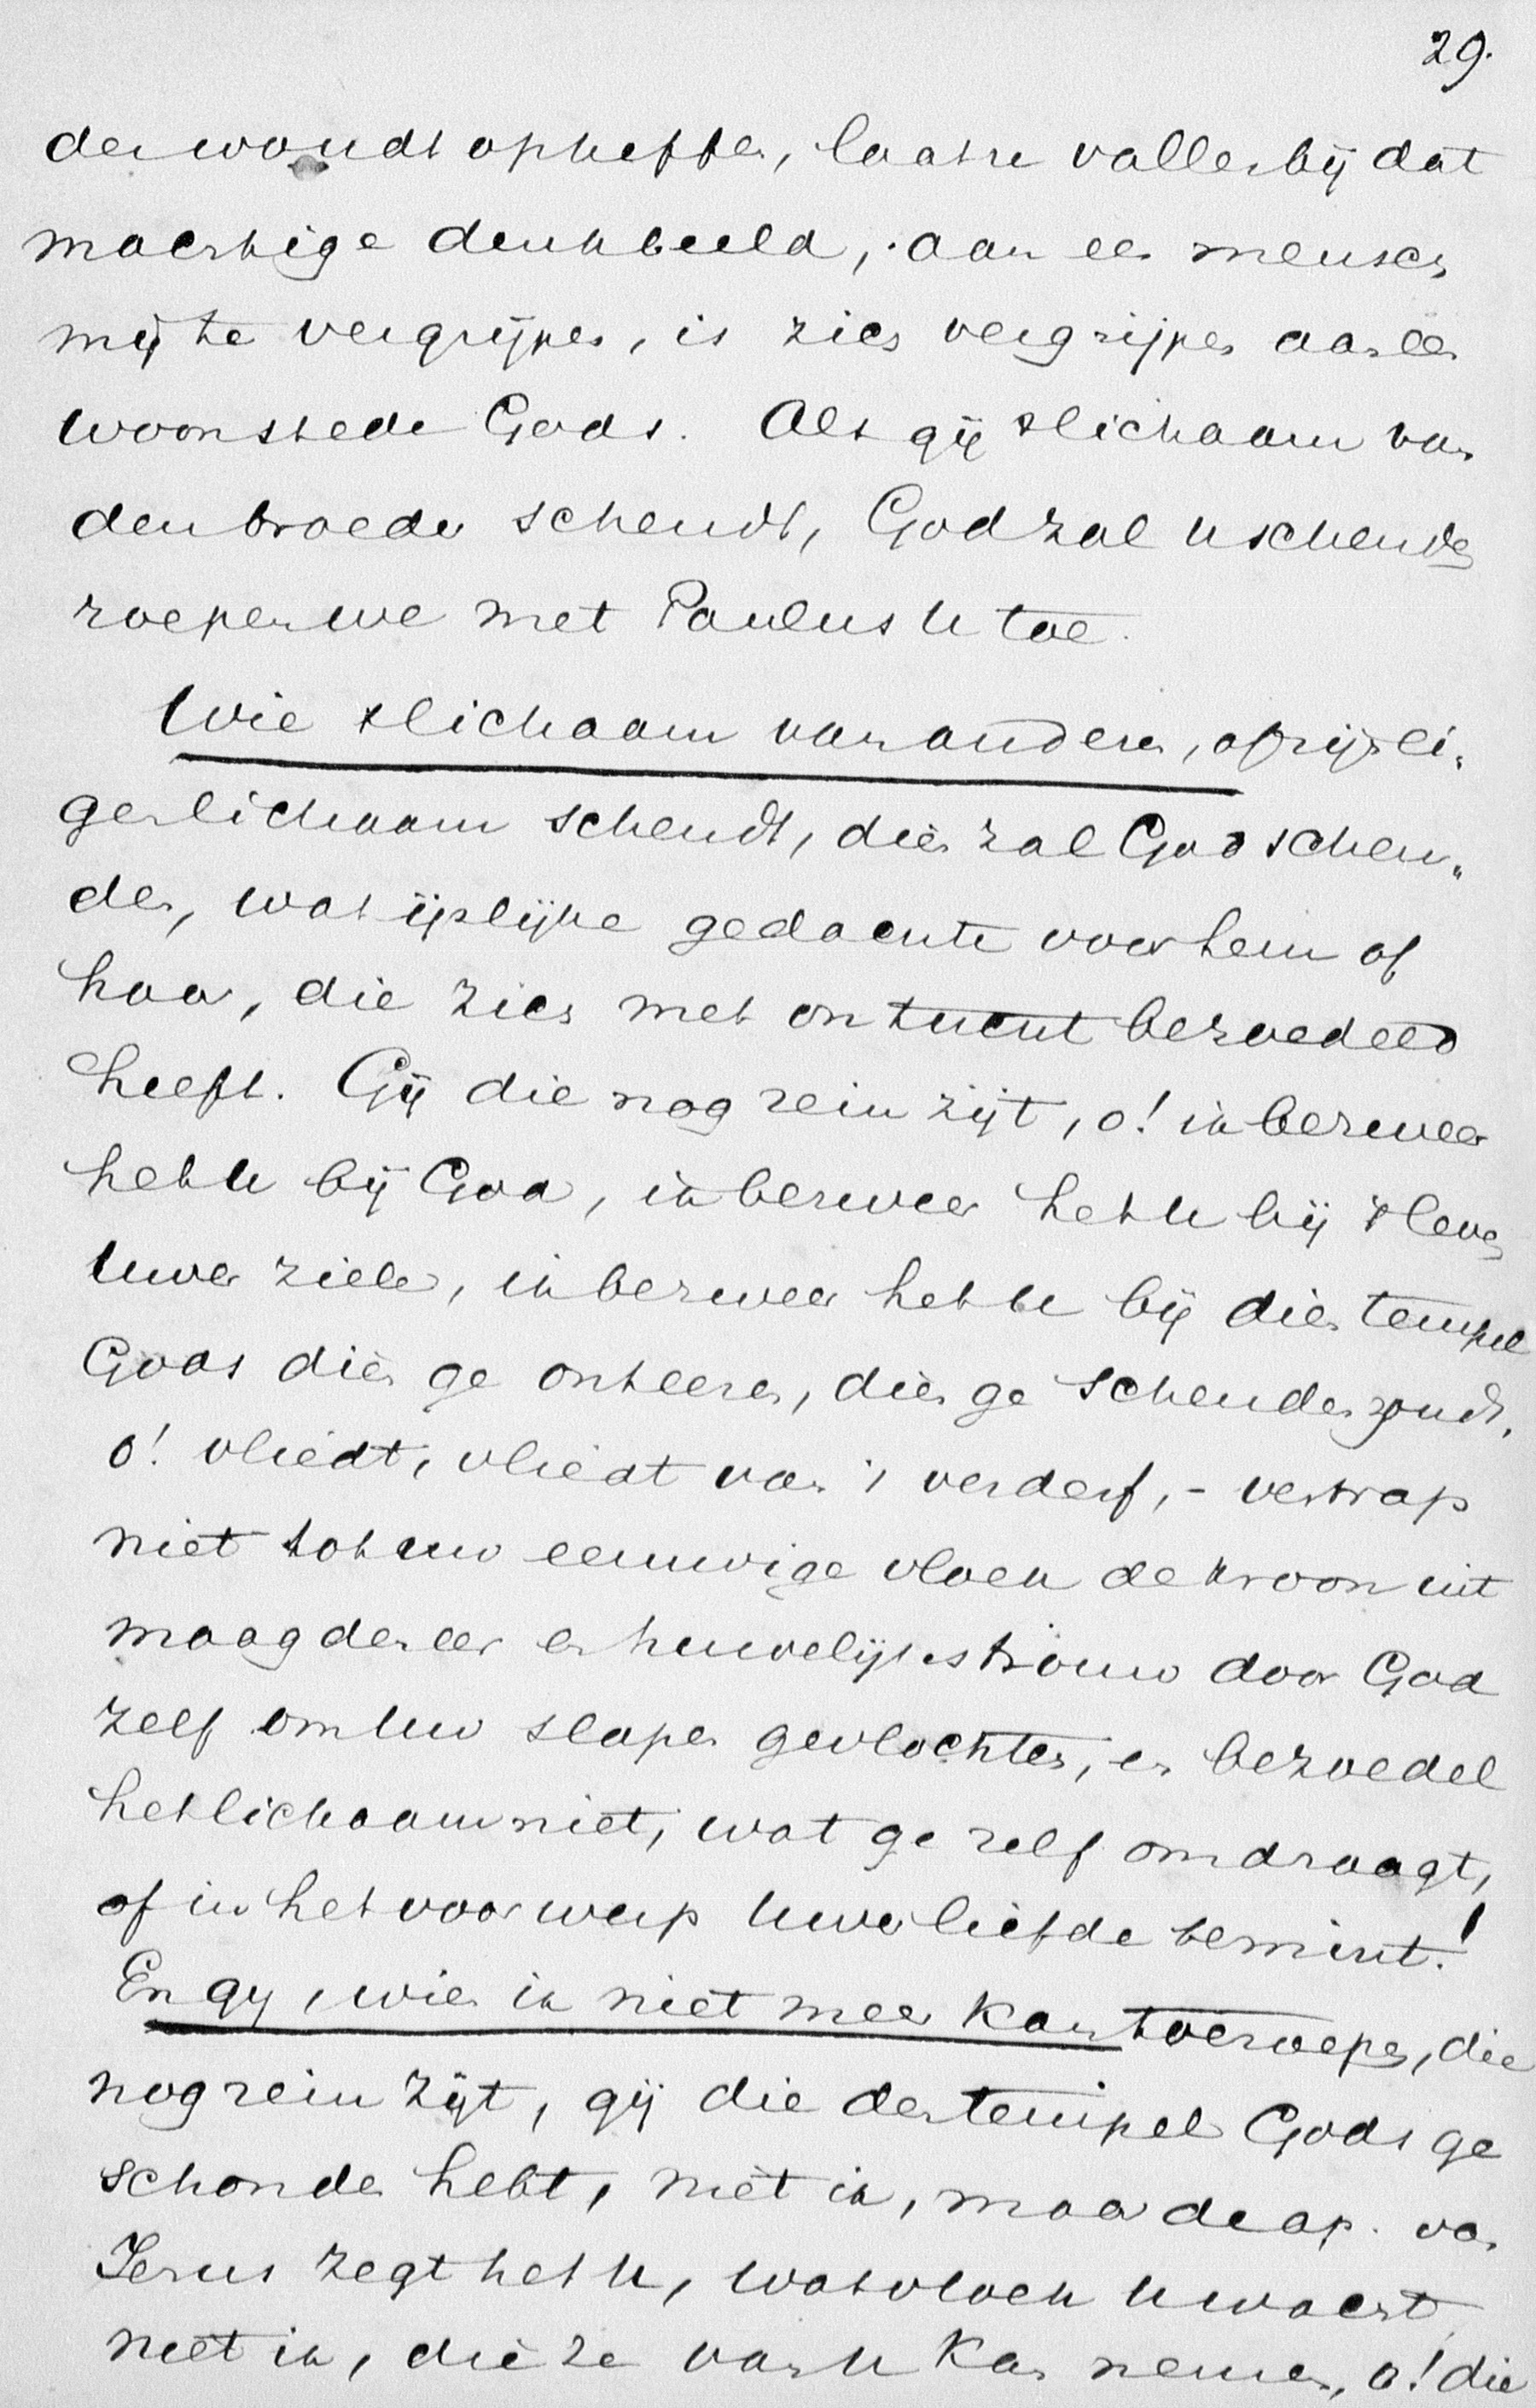 29.
der woudt opheffen, laat ze vallen bij dat
machtige denkbeeld, aan een mensch
mij te vergrijpen, is zich vergrijpen aan een
woonstede Gods. Als gij 't lichaam van
den broeder schendt, God zal u schenden
roepen we met Paulus U toe.
Wie 't lichaam van anderen, of zijn ei-
gen lichaam schendt, dien zal God schen-
den, wat ijslijke gedachte voor hem of
haar, die zich met ontucht bezoedeld
heeft. Gij die nog rein zijt, o! ik bezweer
het U bij God, ik bezweer het U bij 't leven
Uwer zielen, ik bezweer het U bij dien tempel
Gods dien ge onteeren, dien ge schenden zoudt.
o! vliedt, vliedt van 't verderf, - vertrap
niet tot uw eeuwige vloek de kroon uit
maagden eer en huwelijkstrouw door God
zelf om Uw slapen gevlochten, en bezoedel
het lichaam niet, wat ge zelf omdraagt,
of in het voorwerp Uwer liefde bemint!
En gy, wien ik niet meer kan toeroepen, die
nog rein zijt, gij die den tempel Gods ge
schonden hebt, niet ik, maar de ap. van
Jezus zegt het U, wat vloek U wacht,
niet ik, die ze van U kan nemen, o! die